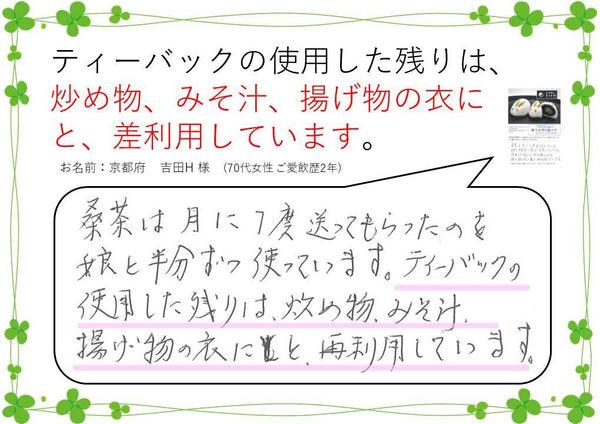 ティーバックの使用した残りは、
炒め物、みそ汁、揚げ物の衣に
と、差利用しています。
お名前：京都府　吉田H 様　(70代女性 ご愛飲歴2年)
桑茶は月に7度送ってもらったのを
娘と半分ずつ使っています。ティーバックの
使用した残りは、炒め物、みそ汁、
揚げ物の衣にと、再利用しています。